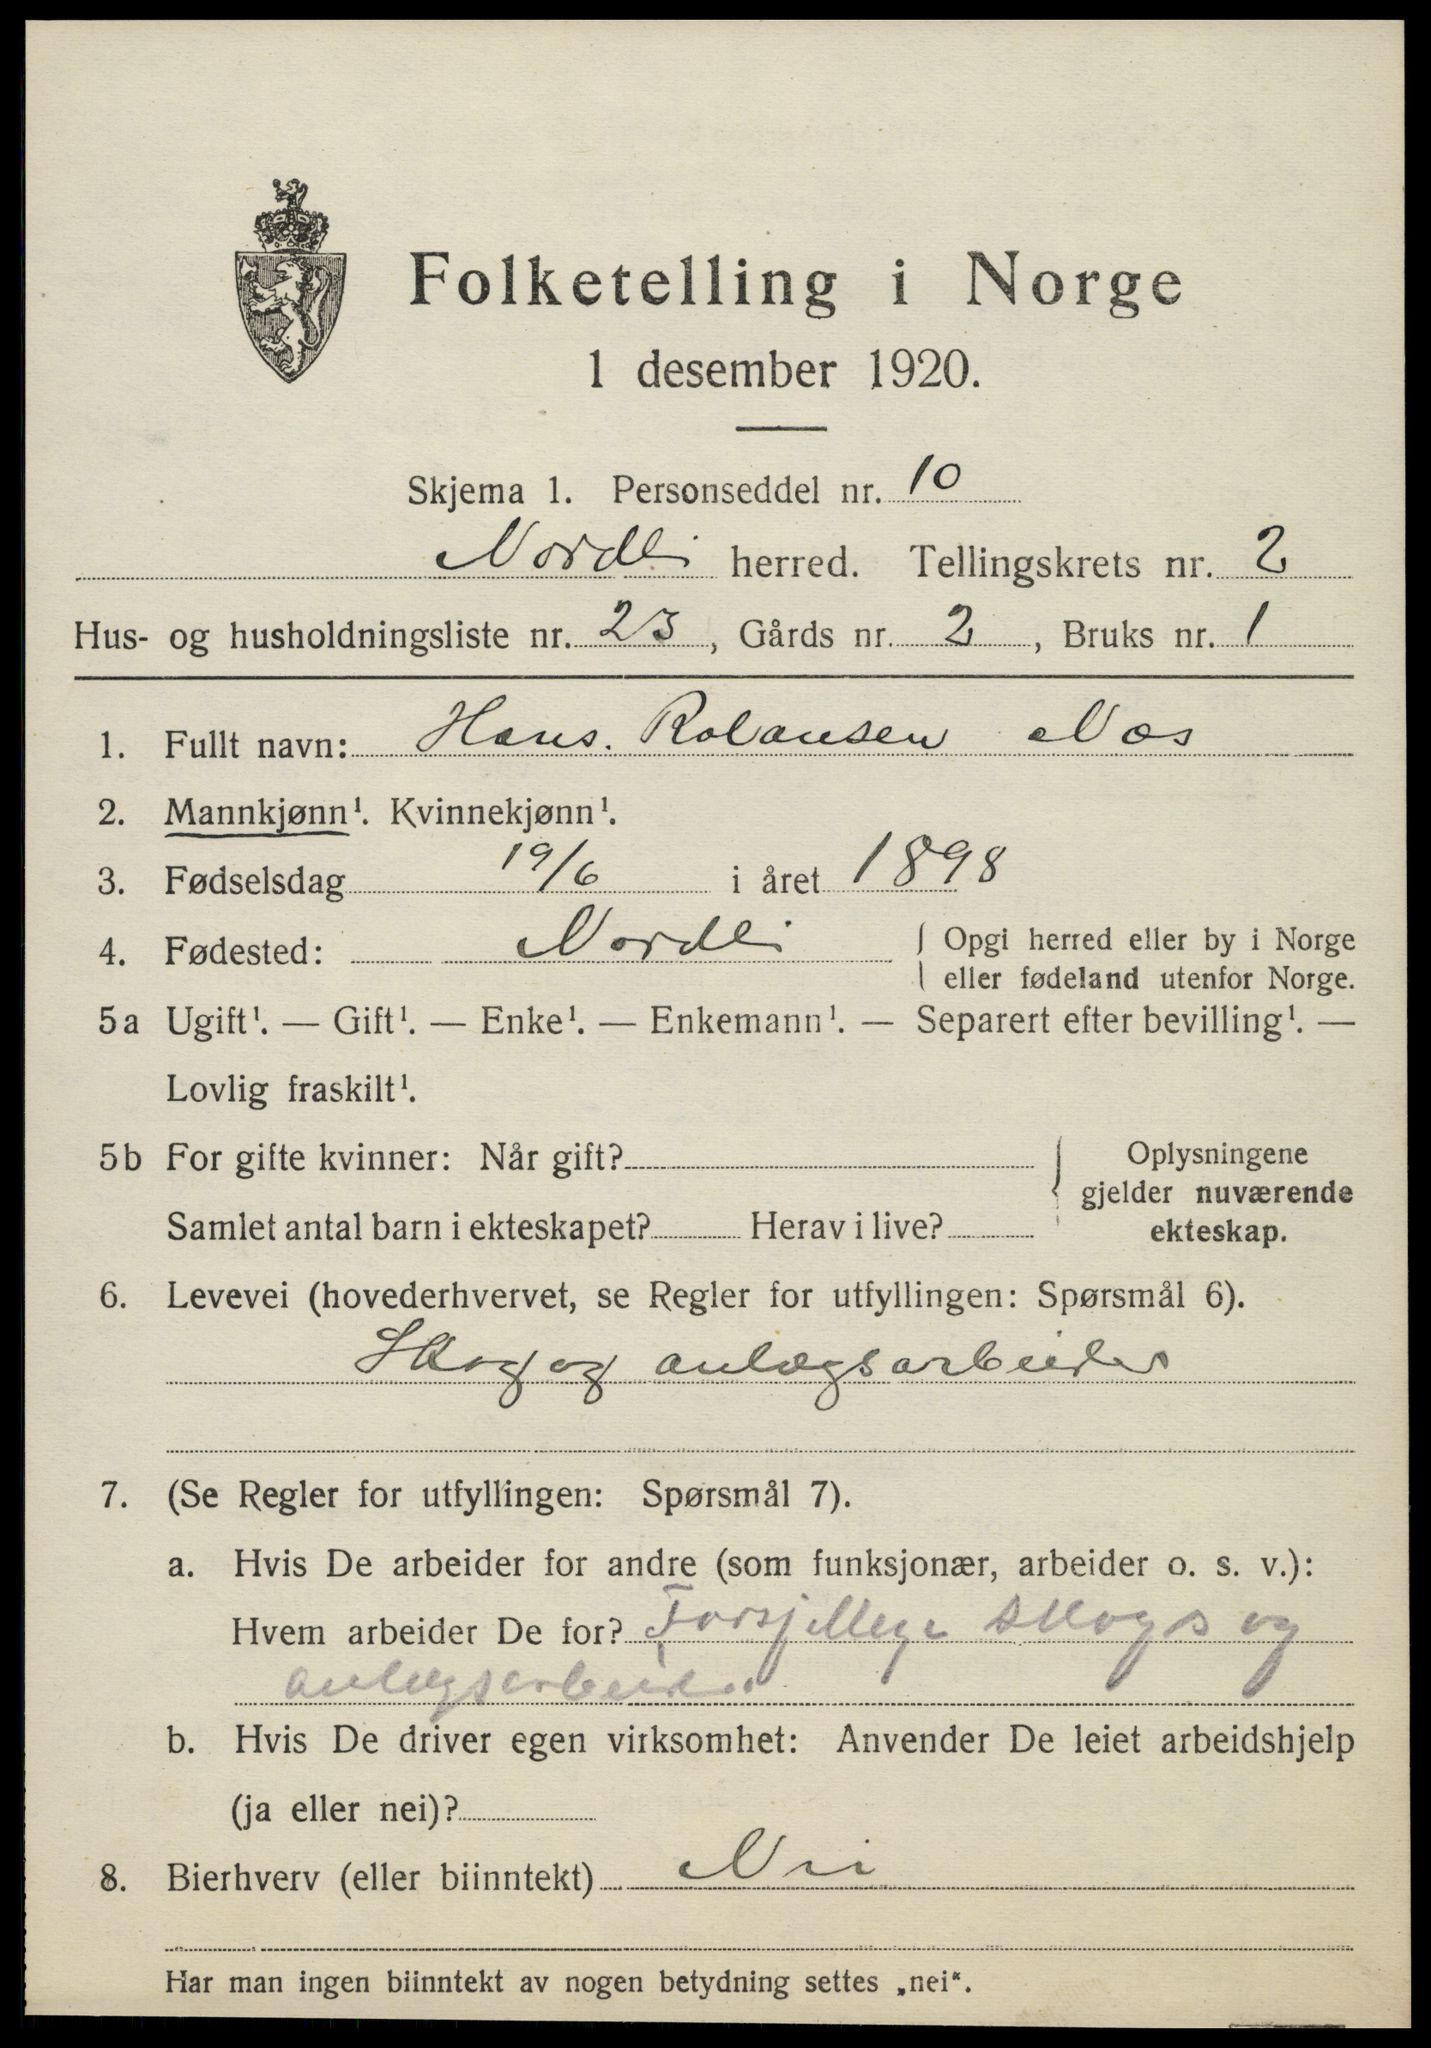 Folketelling i Norge
1 desember 1920.
Skjema 1. Personseddel nr. 10
Nordli herred. Tellingskrets nr. 2
Hus- og husholdningsliste nr. 23, Gårds nr. 2, Bruks nr. 1
1. Fullt navn: Hans. Rolansen Næs
2. Mannkjønn¹. Kvinnekjønn¹.
3. Fødselsdag 19/6 i året 1898
4. Fødested: Nordli { Opgi herred eller by i Norge
eller fødeland utenfor Norge.
5a Ugift¹. — Gift¹. — Enke¹. — Enkemann¹. — Separert efter bevilling¹. —
Lovlig fraskilt¹.
5b For gifte kvinner: Når gift? { Oplysningene
gjelder nuværende
Samlet antal barn i ekteskapet? Herav i live? ekteskap.
6. Levevei (hovederhvervet, se Regler for utfyllingen: Spørsmål 6).
Skog og anlægsarbeider
7. (Se Regler for utfyllingen: Spørsmål 7).
a. Hvis De arbeider for andre (som funksjonær, arbeider o. s. v.):
Hvem arbeider De for? Forsjellege skogs og
anlægsarbeider
b. Hvis De driver egen virksomhet: Anvender De leiet arbeidshjelp
(ja eller nei)?
8. Bierhverv (eller biinntekt) Nei
Har man ingen biinntekt av nogen betydning settes „nei“.